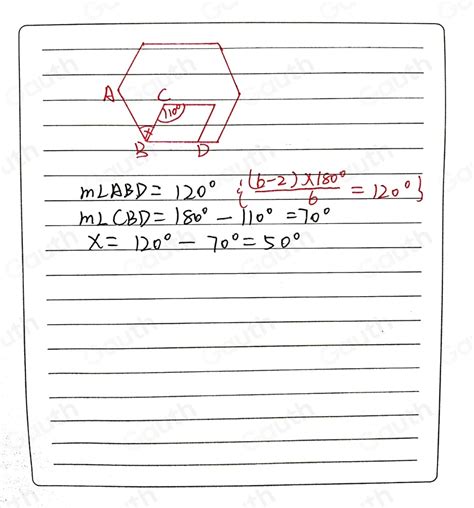 A
C
110°
x
B
D
m∠ABD = 120° {(6-2)×180°/6 = 120°}
m∠CBD = 180° - 110° = 70°
x = 120° - 70° = 50°
Gauth